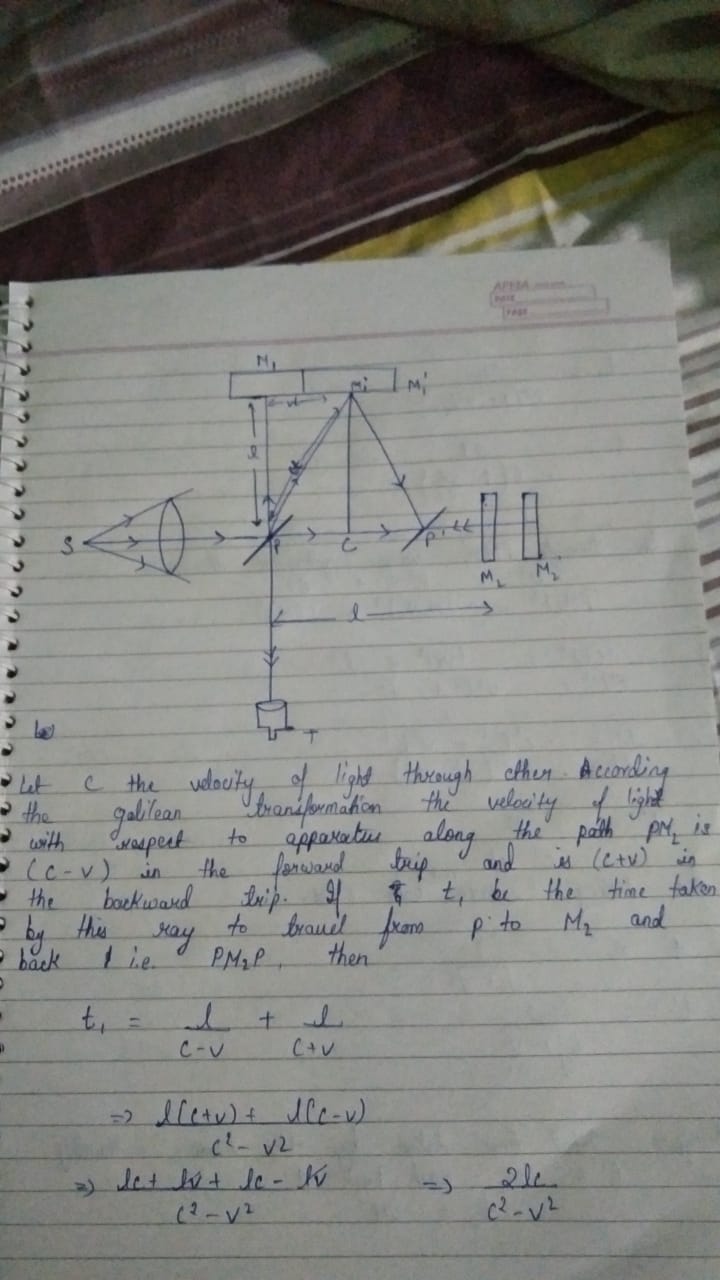 M₁
M₁'
M₁'
vt
l
ct
S
P
C
P'
M₂
M₂'
l
T
Let C the velocity of light through ether. According
the galilean transformation the velocity of light
with respect to apparatus along the path PM₂ is
(C-V) in the forward trip and is (C+V) in
the backward trip. If t₁ be the time taken
by this ray to travel from p to M₂ and
back i.e. PM₂P, then
t₁ = l/(C-V) + l/(C+V)
=> (l(C+V) + l(C-V))/(C²-V²)
=> (lc + lv + lc - lv)/(C²-V²) => 2lc/(C²-V²)